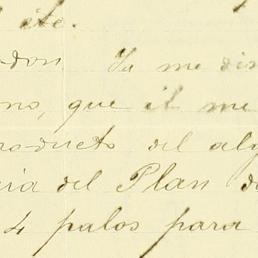 éste.
Ya me di
no, que él me
producto del alg
ria del Plan de
4 palos para